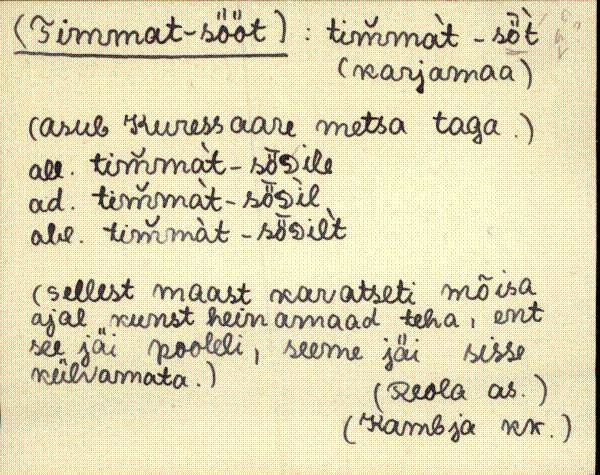 (Timmat-sööt) : tim̆màt - sȫ̀t
(karjamaa)
(asub Kuressaare metsa taga.)
all. tim̆màt - sȫᴅile
ad. tim̆màt - sȫᴅìl
abl. tim̆màt - sȫᴅilt̀
(sellest maast kavatseti mõisa
ajal kunstheinamaad teha, ent
see jäi pooleli, seeme jäi sisse
külvamata.)
(Reola as.)
(Kambja kk.)